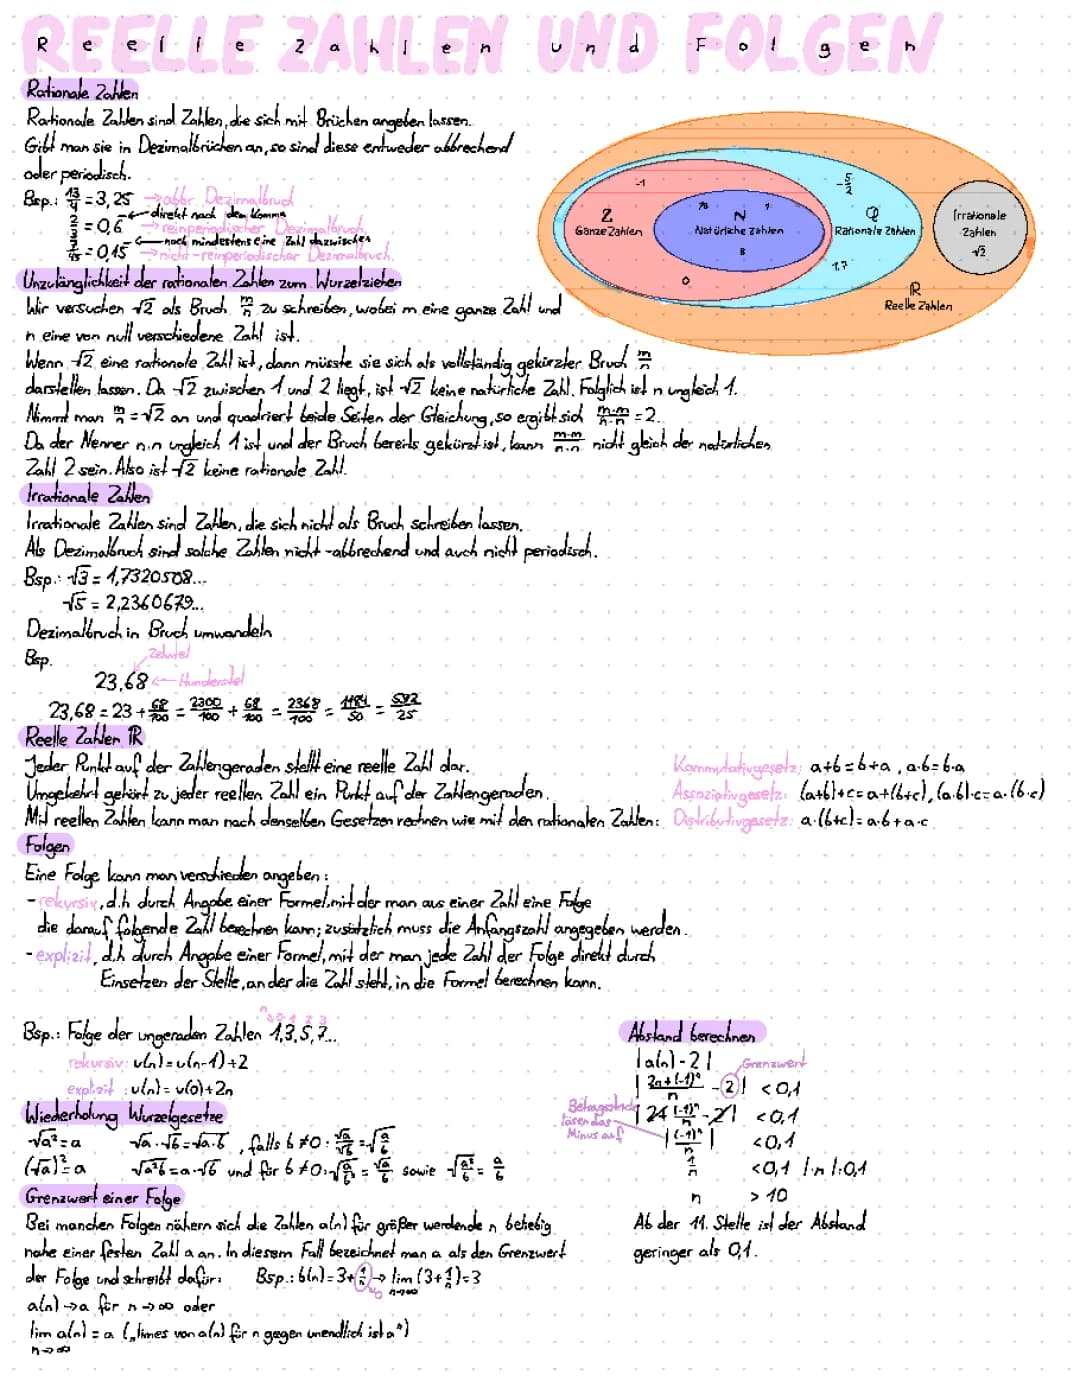 REELLE ZAHLEN UND FOLGEN
Reelle Zahlen und Folgen
Rationale Zahlen
Rationale Zahlen sind Zahlen, die sich mit Brüchen angeben lassen.
Gibt man sie in Dezimalbrüchen an, so sind diese entweder abbrechend
oder periodisch.
Bsp.: 13/4 = 3,25 → abbr. Dezimalbruch
← direkt nach dem Komma
= 0,6 → reinperiodischer Dezimalbruch
← noch mindestens eine Zahl dazwischen
= 0,45 → nicht-reinperiodischer Dezimalbruch
-1
Z
Ganze Zahlen
0
N
Natürliche Zahlen
1
8
-5/2
Q
Rationale Zahlen
1,7
R
Reelle Zahlen
Irrationale
Zahlen
√2
Unzulänglichkeit der rationalen Zahlen zum Wurzelziehen
Wir versuchen √2 als Bruch m/n zu schreiben, wobei m eine ganze Zahl und
n eine von null verschiedene Zahl ist.
Wenn √2 eine rationale Zahl ist, dann müsste sie sich als vollständig gekürzter Bruch m/n
darstellen lassen. Da √2 zwischen 1 und 2 liegt, ist √2 keine natürliche Zahl. Folglich ist n ungleich 1.
Nimmt man m/n = √2 an und quadriert beide Seiten der Gleichung, so ergibt sich m·m/n·n = 2.
Da der Nenner n·n ungleich 1 ist und der Bruch bereits gekürzt ist, kann m·m/n·n nicht gleich der natürlichen
Zahl 2 sein. Also ist √2 keine rationale Zahl.
Irrationale Zahlen
Irrationale Zahlen sind Zahlen, die sich nicht als Bruch schreiben lassen.
Als Dezimalbruch sind solche Zahlen nicht-abbrechend und auch nicht periodisch.
Bsp.: √3 = 1,7320508...
√5 = 2,2360679...
Dezimalbruch in Bruch umwandeln
Bsp.
Zehntel
23,68 ← Hunderstel
23,68 = 23 + 68/100 = 2300/100 + 68/100 = 2368/100 = 1184/50 = 592/25
Reelle Zahlen ℝ
Jeder Punkt auf der Zahlengeraden stellt eine reelle Zahl dar.
Umgekehrt gehört zu jeder reellen Zahl ein Punkt auf der Zahlengeraden.
Mit reellen Zahlen kann man nach denselben Gesetzen rechnen wie mit den rationalen Zahlen:
Kommutativgesetz: a+b = b+a, a·b = b·a
Assoziativgesetz: (a+b)+c = a+(b+c), (a·b)·c = a·(b·c)
Distributivgesetz: a·(b+c) = a·b + a·c
Folgen
Eine Folge kann man verschieden angeben:
- rekursiv, d.h durch Angabe einer Formel, mit der man aus einer Zahl eine Folge
die darauf folgende Zahl berechnen kann; zusätzlich muss die Anfangszahl angegeben werden.
- explizit, d.h durch Angabe einer Formel, mit der man jede Zahl der Folge direkt durch
Einsetzen der Stelle, an der die Zahl steht, in die Formel berechnen kann.
n → 0 1 2 3
Bsp.: Folge der ungeraden Zahlen 1,3,5,7...
rekursiv: u(n) = u(n-1)+2
explizit: u(n) = u(0)+2n
Wiederholung Wurzelgesetze
√a² = a √a·√b = √a·b, falls b ≠ 0: √a/√b = √a/b
(√a)² = a √a²b = a·√b und für b ≠ 0: √a/b² = √a/b sowie √a²/b² = a/b
Grenzwert einer Folge
Bei manchen Folgen nähern sich die Zahlen a(n) für größer werdende n beliebig
nahe einer festen Zahl a an. In diesem Fall bezeichnet man a als den Grenzwert
der Folge und schreibt dafür: Bsp.: b(n) = 3+1/n → lim (3+1/n) = 3
n→∞
a(n) → a für n → ∞ oder
lim a(n) = a („limes von a(n) für n gegen unendlich ist a")
n→∞
Abstand berechnen
|a(n) - 2|
Grenzwert
|2n+(-1)ⁿ/n - 2| < 0,1
Betragsstriche
lösen das
Minus auf
|2+(-1)ⁿ/n - 2| < 0,1
|(-1)ⁿ/n| < 0,1
1/n < 0,1 |·n |:0,1
n > 10
Ab der 11. Stelle ist der Abstand
geringer als 0,1.